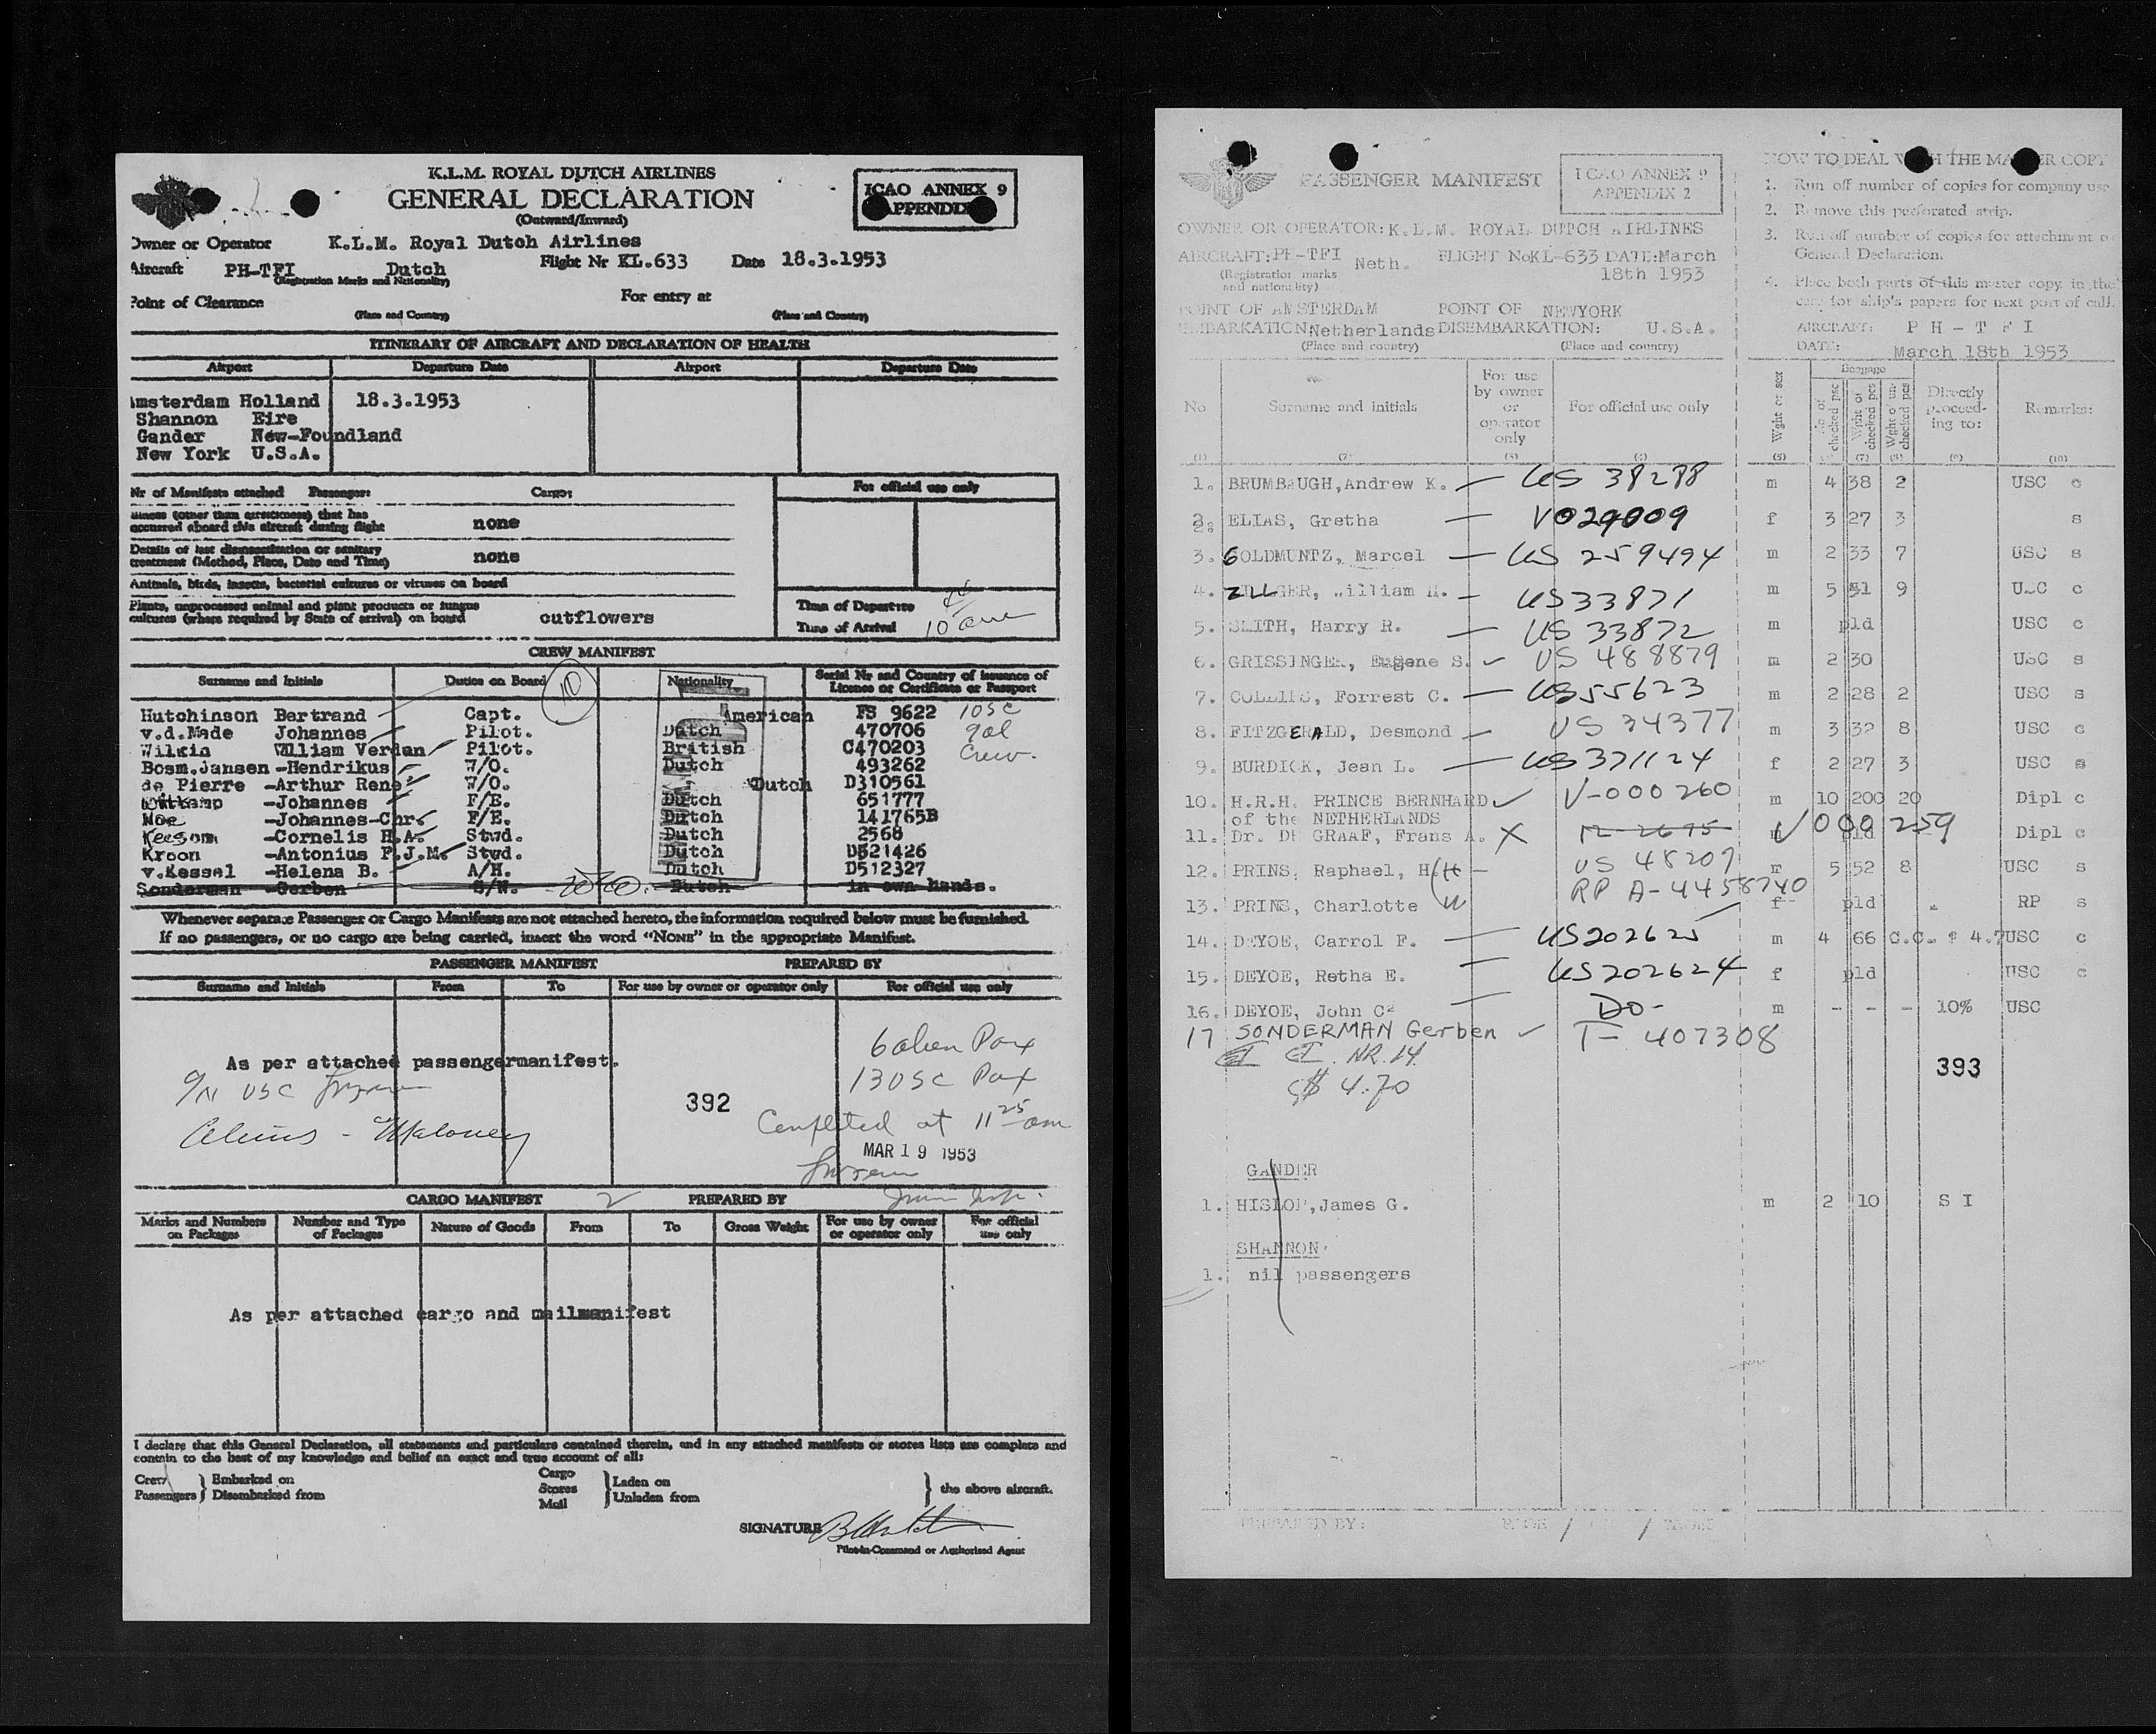 K.L.M. ROYAL DUTCH AIRLINES
GENERAL DECLARATION
(Outward/Inward)
ICAO ANNEX 9
APPENDIX
Owner or Operator K.L.M. Royal Dutch Airlines
Aircraft PH-TFI Dutch Flight Nr KL.633 Date 18.3.1953
(Registration Marks and Nationality)
Point of Clearance For entry at
(Place and Country) (Place and Country)
ITINERARY OF AIRCRAFT AND DECLARATION OF HEALTH
Airport Departure Date Airport Departure Date
Amsterdam Holland 18.3.1953
Shannon Eire
Gander New-Foundland
New York U.S.A.
Nr of Manifests attached Passenger: Cargo:
For official use only
Illness (other than airsickness) that has
occurred aboard this aircraft during flight none
Details of last disinsectisation or sanitary
treatment (Method, Place, Date and Time) none
Animals, birds, insects, bacterial cultures or viruses on board
Plants, unprocessed animal and plant products or fungus
cultures (where required by State of arrival) on board cutflowers
Time of Departure
Time of Arrival 10 am
CREW MANIFEST
Surname and Initials Duties on Board 10 Nationality Serial Nr and Country of Issuance of
Licence or Certificate or Passport
Hutchinson Bertrand Capt. American FS 9622 1 USC
v.d.Made Johannes Pilot. Dutch 470706 9 al
Wilkin William Verdun Pilot. British C470203 Crew.
Bosm.Jansen -Hendrikus W/O. Dutch 493262
de Pierre -Arthur Rene W/O. Dutch D310561
Witkamp -Johannes F/E. Dutch 651777
Noe -Johannes-Chr. F/E. Dutch 141765B
Keesom -Cornelis H.A. Stwd. Dutch 2568
Kroon -Antonius P.J.M. Stwd. Dutch D521426
v.Kessel -Helena B. A/H. Dutch D512327
Sonderman -Gerben S/N. Dutch in own hands.
Whenever separate Passenger or Cargo Manifests are not attached hereto, the information required below must be furnished.
If no passengers, or no cargo are being carried, insert the word "NONE" in the appropriate Manifest.
PASSENGER MANIFEST PREPARED BY
Surname and Initials From To For use by owner or operator only For official use only
As per attached passengermanifest.
6 alien Pax
13 USC Pax
USC
Aliens - Maloney
392
Completed at 11 25 am
MAR 19 1953
CARGO MANIFEST 2 PREPARED BY
Marks and Numbers on Packages Number and Type of Packages Nature of Goods From To Gross Weight For use by owner or operator only For official use only
As per attached cargo and mailmanifest
I declare that this General Declaration, all statements and particulars contained therein, and in any attached manifests or stores lists are complete and
contain to the best of my knowledge and belief an exact and true account of all:
Crew Embarked on Cargo Laden on
Passengers Disembarked from Stores Unladen from the above aircraft.
Mail
SIGNATURE
Pilot-in-Command or Authorised Agent
PASSENGER MANIFEST
ICAO ANNEX 9
APPENDIX 2
OWNER OR OPERATOR: K.L.M. ROYAL DUTCH AIRLINES
AIRCRAFT: PH-TFI Neth. FLIGHT No KL-633 DATE: March
18th 1953
(Registration marks
and nationality)
POINT OF AMSTERDAM POINT OF NEWYORK
EMBARKATION: Netherlands DISEMBARKATION: U.S.A.
(Place and country) (Place and country)
HOW TO DEAL WITH THE MASTER COPY
1. Run off number of copies for company use
2. Remove this perforated strip.
3. Run off number of copies for attachment to
General Declaration.
4. Place both parts of this master copy in the
case for ship's papers for next port of call.
AIRCRAFT: PH-TFI
DATE: March 18th 1953
No Surname and initials For use by owner or operator only For official use only Wght or sex Baggage No of checked pcs Wght of checked pcs Wght of un-checked pcs Directly proceed-ing to: Remarks:
(1) (2) (3) (4) (5) (7) (8) (9) (10)
1. BRUMBAUGH, Andrew K. — US 38288 m 4 38 2 USC c
2. ELIAS, Gretha — V029009 f 3 27 3 s
3. GOLDMUNTZ, Marcel — US 259494 m 2 33 7 USC s
4. William H. — US 33871 m 5 51 9 USC c
5. SMITH, Harry R. — US 33872 m pld USC c
6. GRISSINGER, Eugene S. US 488879 m 2 30 USC s
7. COLLINS, Forrest C. — US 55623 m 2 28 2 USC s
8. FITZGERALD, Desmond — US 34377 m 3 32 8 USC c
9. BURDICK, Jean L. — US 371124 f 2 27 3 USC s
10. H.R.H. PRINCE BERNHARD V-000260 m 10 200 20 Dipl c
of the NETHERLANDS
11. Dr. DE GRAAF, Frans A. X V000259 pld Dipl c
12. PRINS, Raphael, H. (H — US 48207 m 5 52 8 USC s
13. PRINS, Charlotte W RP A-4458740 f pld RP s
14. DEYOE, Carrol F. — US 202625 m 4 66 C.C. $ 4.7 USC c
15. DEYOE, Retha E. — US 202624 f pld USC c
16. DEYOE, John C — DO- m - - - 10% USC
17 SONDERMAN Gerben T- 407308
NR. 14
$ 4.70
393
GANDER
1. HISLOP, James G. m 2 10 S I
SHANNON
1. nil passengers
PREPARED BY: